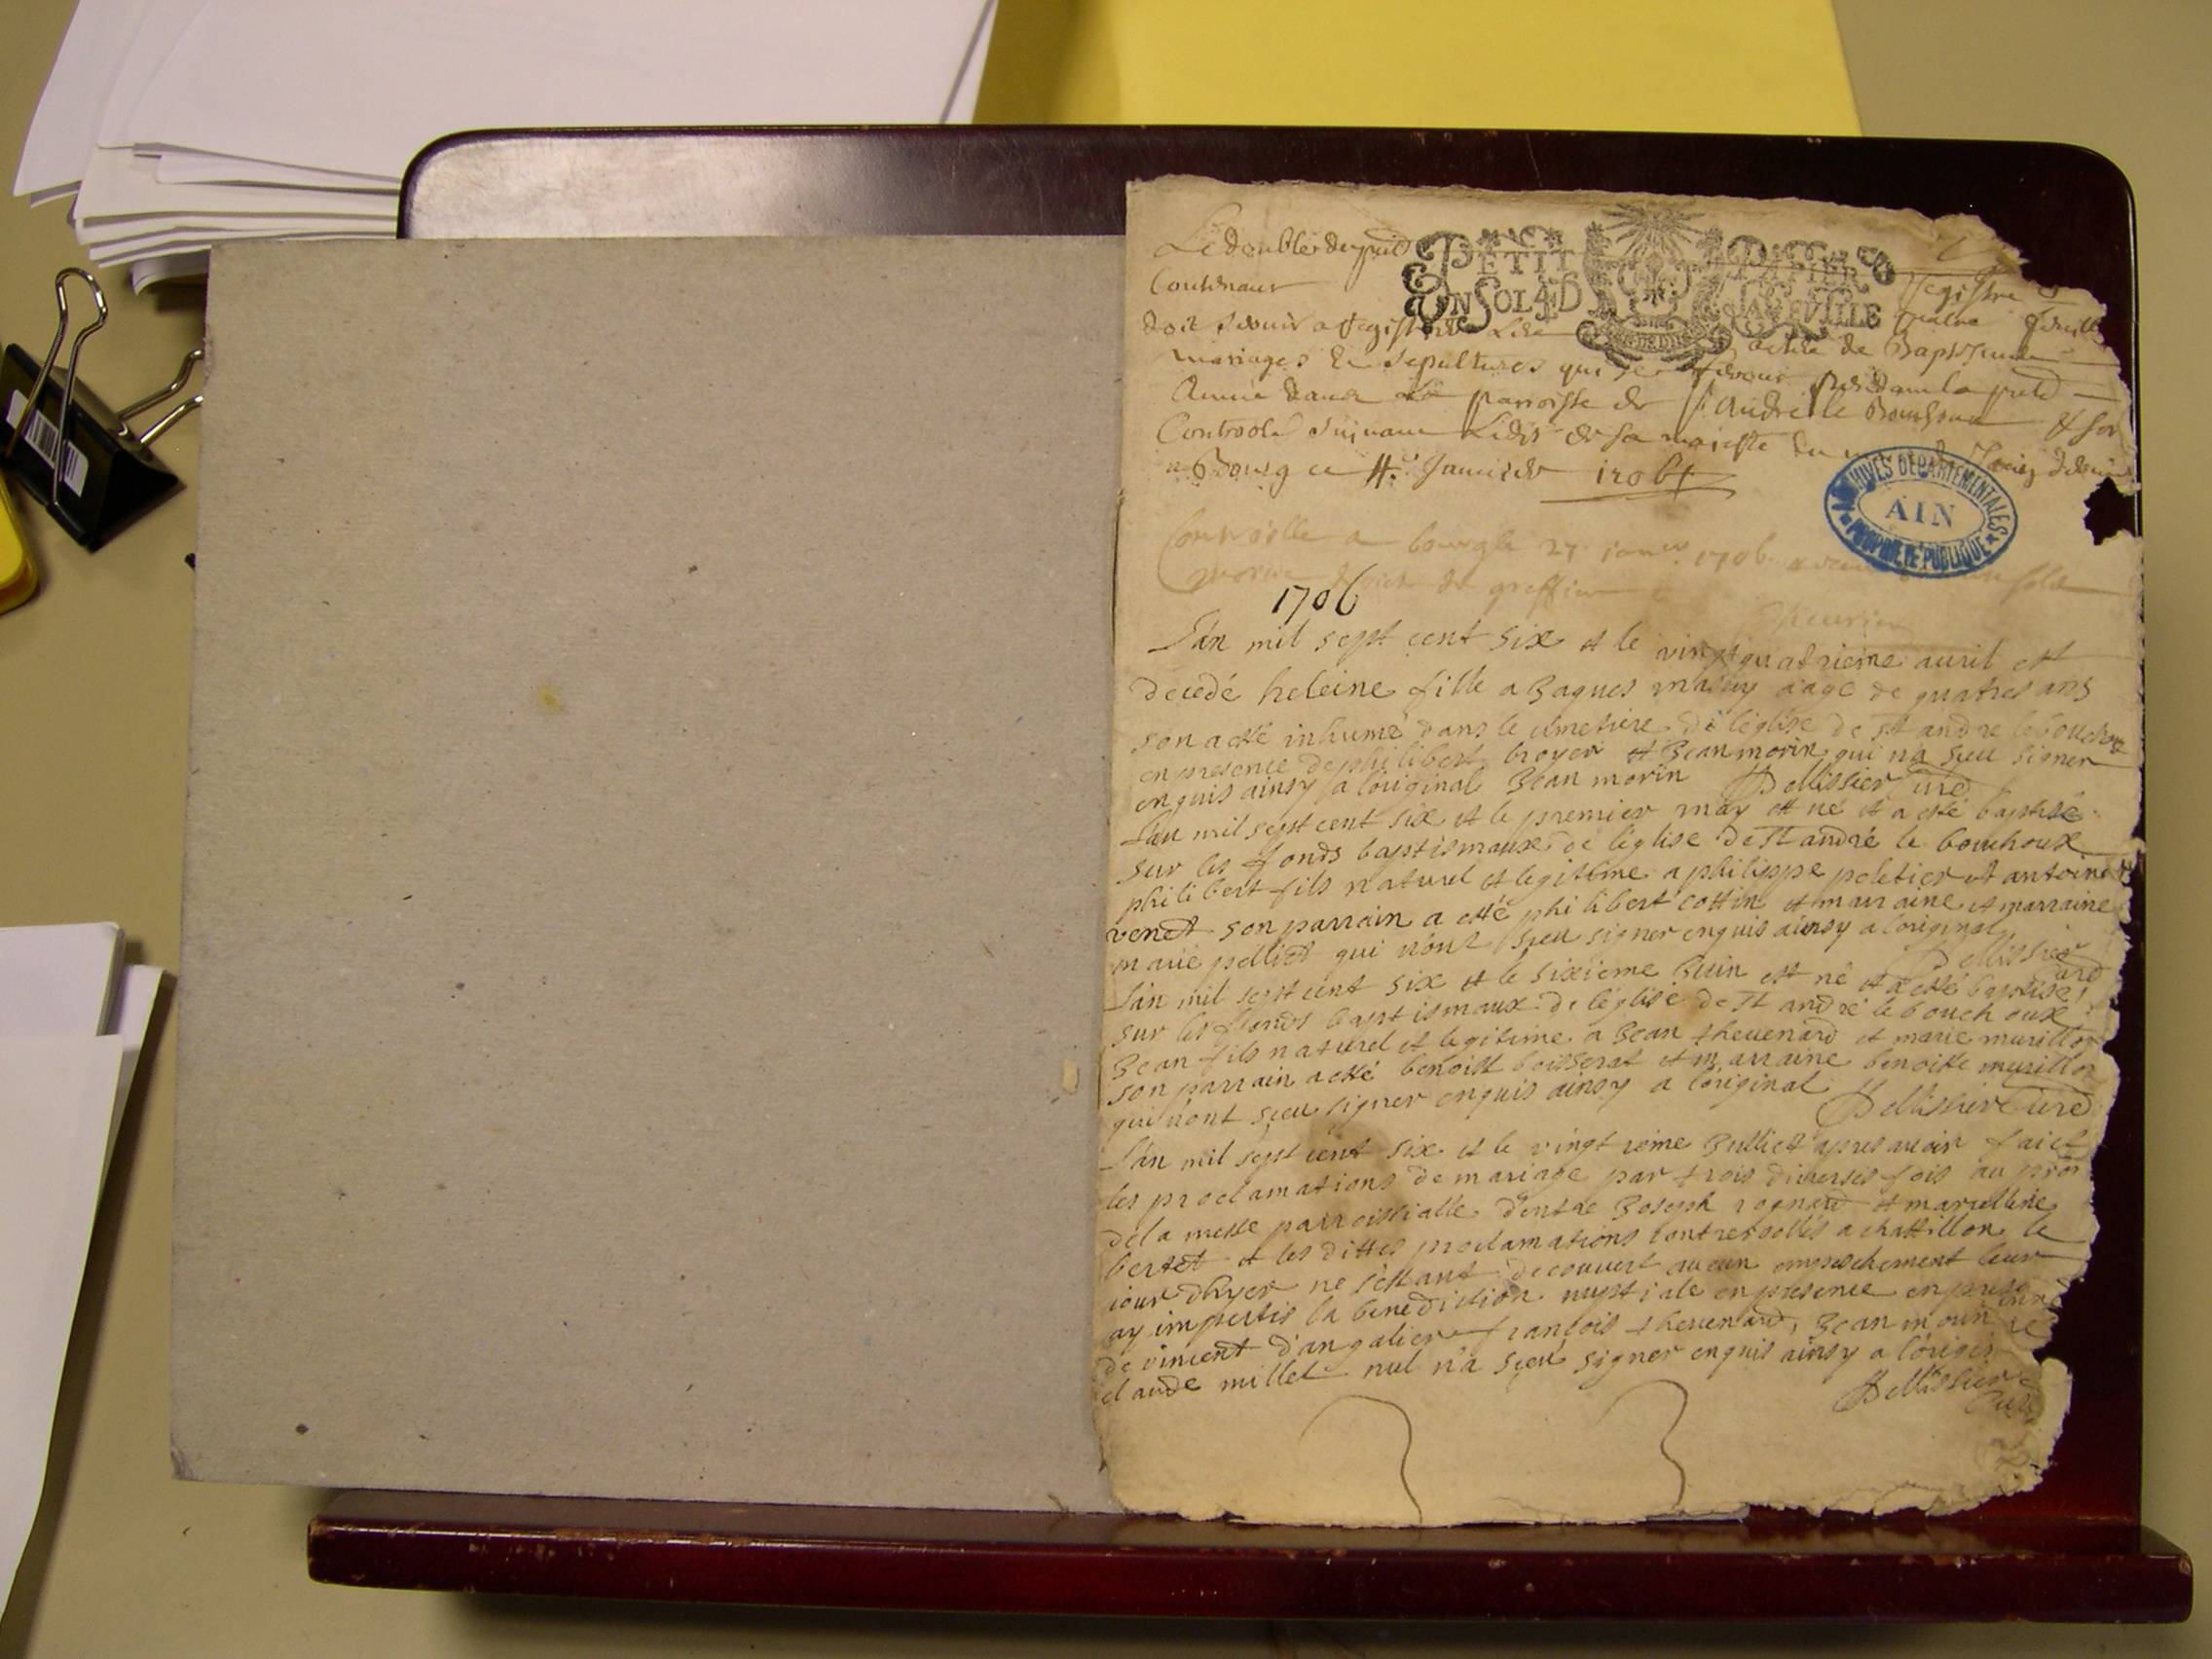 Le double du
PETIT PAPIER
UN SOL 4 D LA FEUILLE
Contenant Registre
doit servir a registre
mariages Et sepultures qui se de Baptesme
Année dans La parroisse de St André le Bouchoux
Controolé suivant Ledit de sa majesté du
a Bourg ce Janvier 1706
ARCHIVES DÉPARTEMENTALES
AIN
PROPRIÉTÉ PUBLIQUE
Controolle a bourg le 27 janv 1706
greffier
1706
L'an mil sept cent six et le vingt quatrieme auril est
decedé heleine fille a Jaques aage de quatres ans
son a esté inhumé dans le cimetiere de l'église de St andre le bouchoux
en presence de philibert broyer et Jean morin qui n'a sceu signer
enquis ainsy a l'original Jean morin Pellissier Curé
L'an mil sept cent six et le premier may est né et a esté baptisé
sur les fonds baptismaux de l'église de St andré le bouchoux
philibert fils naturel et legitime a philippe peletier et antoine
venet son parrain a esté philibert cottin et marraine et marraine
marie pelliet qui n'ont sceu signer enquis ainsy a l'original
Pellissier curé
L'an mil sept cent six et le sixieme Juin est né et a esté baptisé
sur les fonds baptismaux de l'église de St andré le bouchoux
Jean fils naturel et legitime a Jean theuenard et marie murillon
son parrain a esté benoist boisserat et marraine benoite murillon
qui n'ont sceu signer enquis ainsy a l'original Pellissier Curé
L'an mil sept cent six et le vingt Julliet apres avoir faict
les proclamations de mariage par trois diverses fois au pron
de la messe parroissialle d'entre Joseph rognard et marcelline
bertet et les dittes proclamations controollés a chattillon le
iour d'hyer ne s'estant decouvert aucun empeschement leur
ay impertis la benediction nuptiale en presence en presence
de vincent d'angalier francois theuenard, Jean morin et
claude millet nul n'a sceu signer enquis ainsy a l'origin
Pellissier
Curé